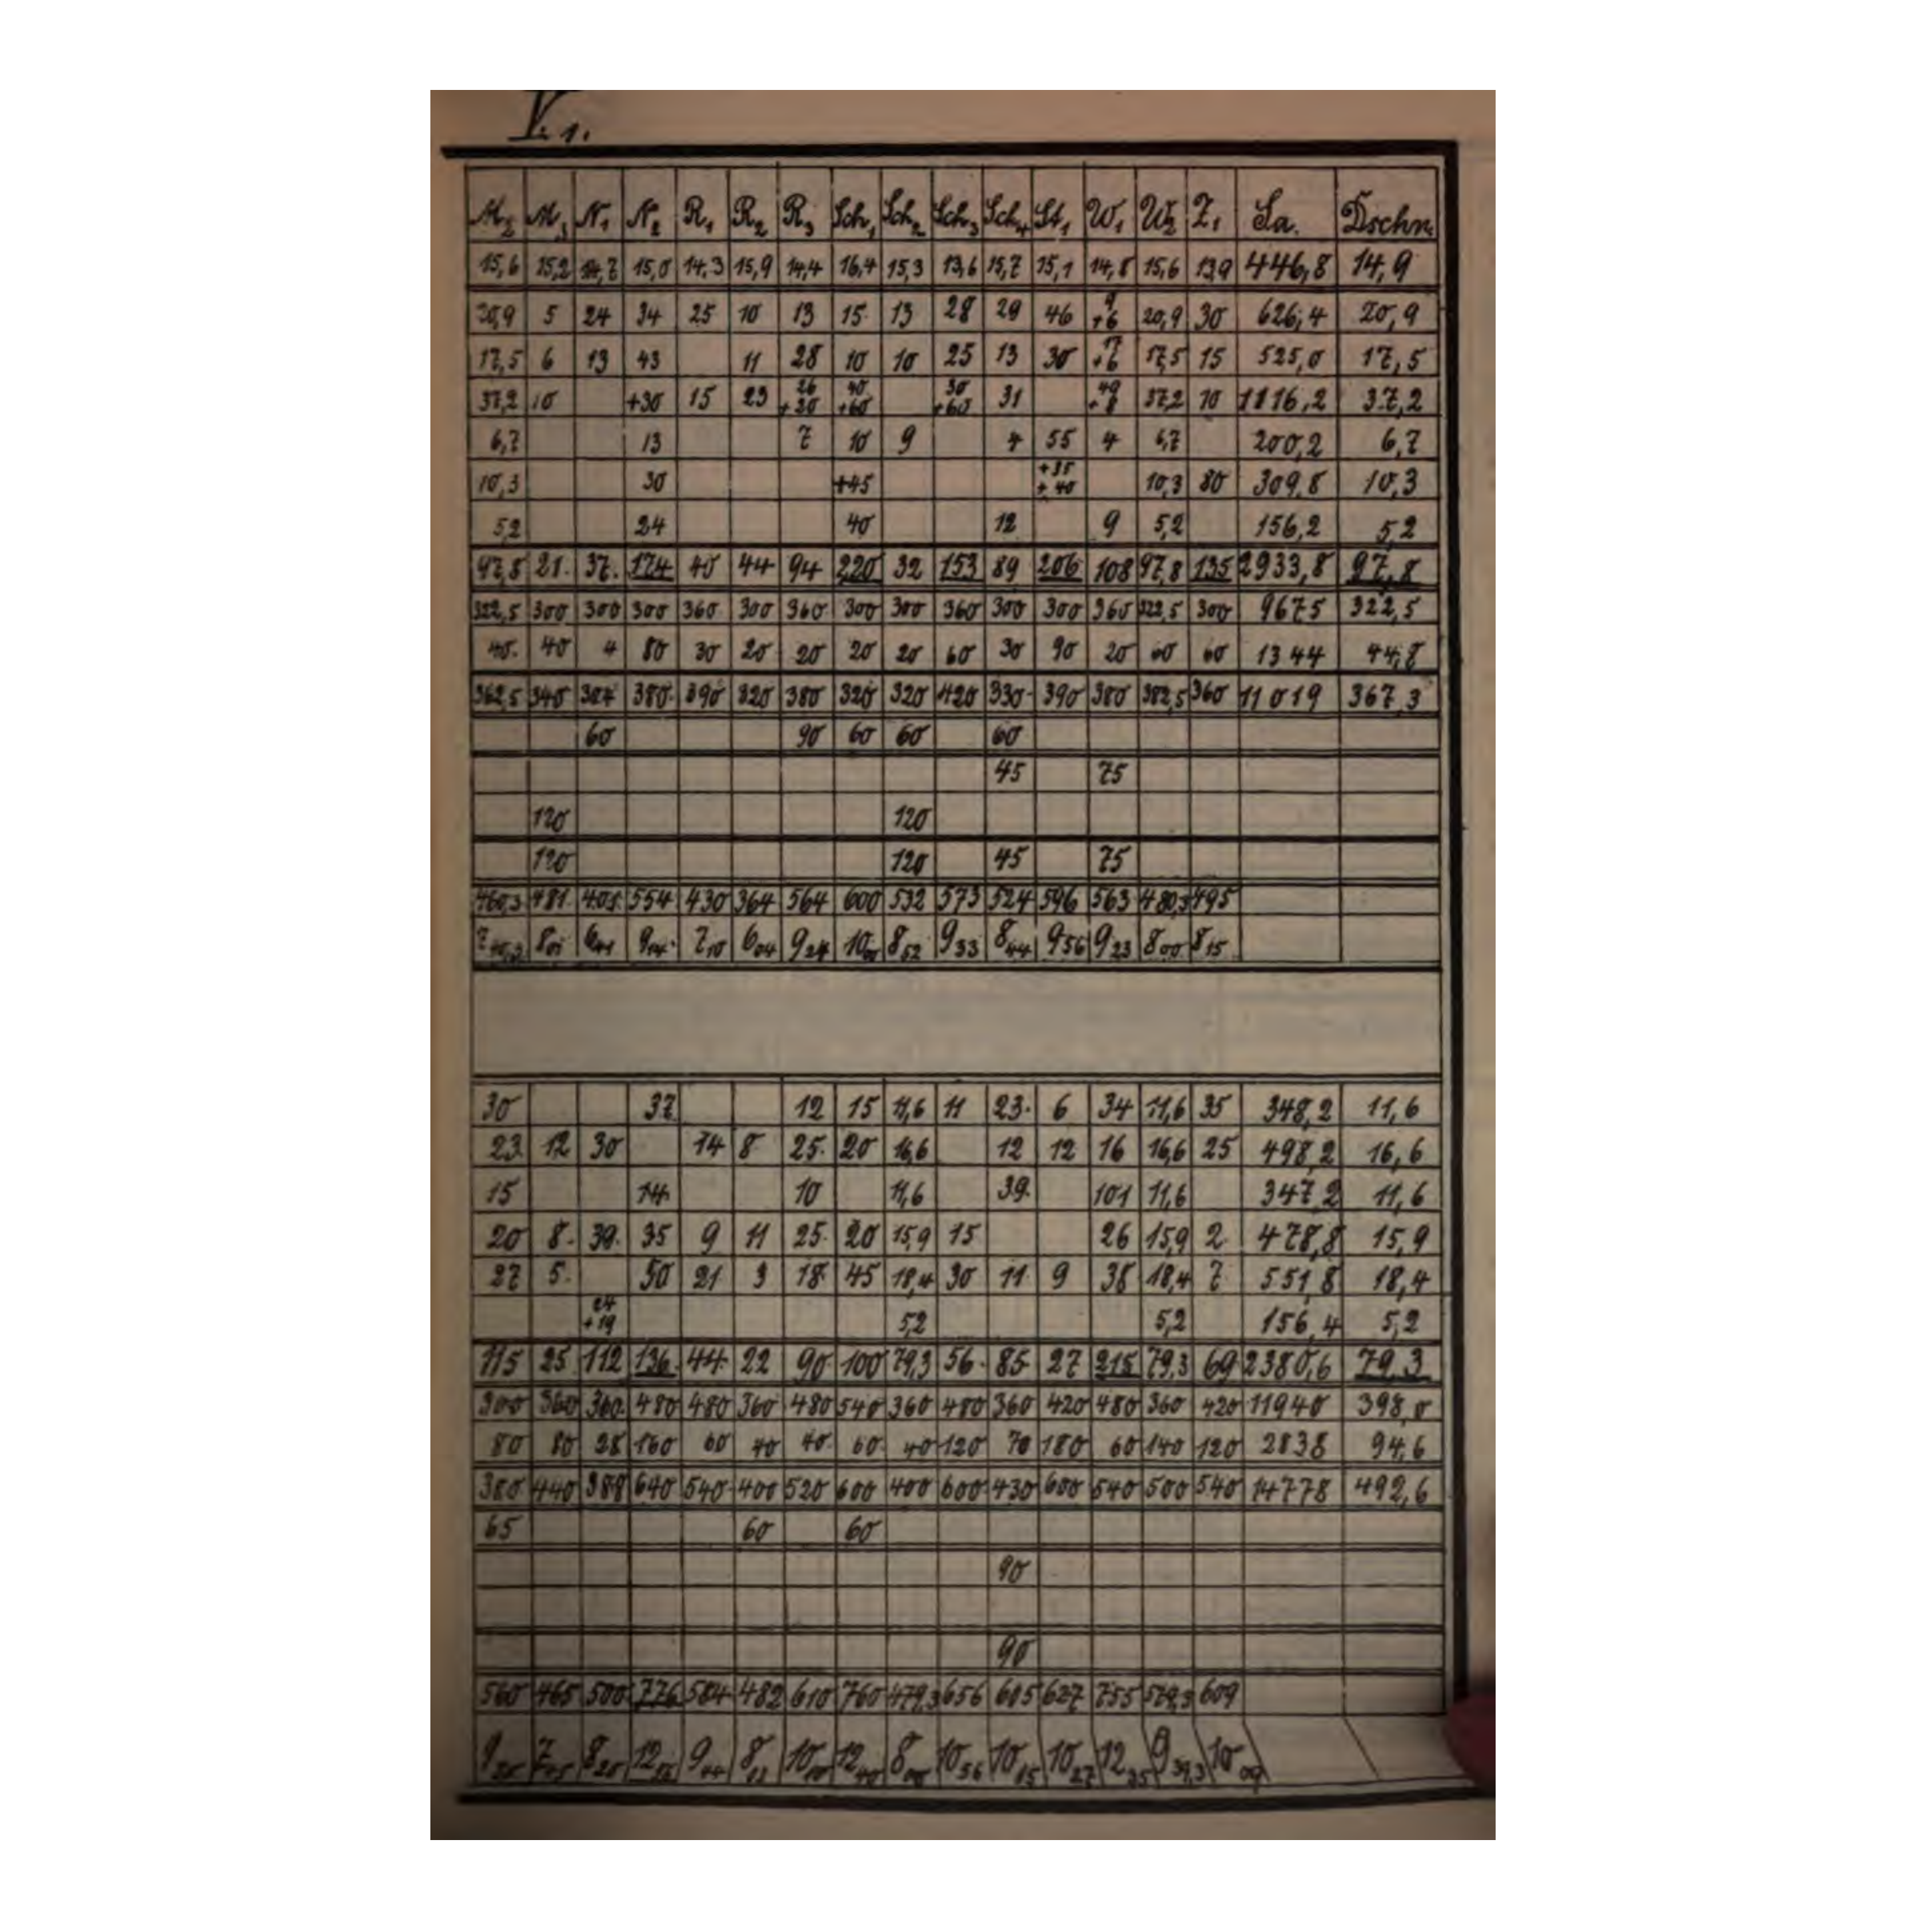 V. 1.
M2 M3 N1 N2 R1 R2 R3 Sch1 Sch2 Sch3 Sch4 St1 W1 W2 Z1 Sa. Dschn.
15,6 15,2 14,7 15,0 14,3 15,9 14,4 16,4 15,3 13,6 15,7 15,1 14,8 15,6 13,9 446,8 14,9
20,9 5 24 34 25 10 13 15 13 28 29 46 9 +6 20,9 30 626,4 20,9
17,5 6 13 43 11 28 10 10 25 13 30 17 +6 17,5 15 525,0 17,5
37,2 10 +30 15 23 26 +20 40 +60 30 +60 31 49 +8 37,2 10 1116,2 37,2
6,7 13 7 10 9 4 55 4 6,7 200,2 6,7
10,3 30 +45 +35 +40 10,3 80 309,8 10,3
5,2 24 40 12 9 5,2 156,2 5,2
97,8 21. 37. 174 40 44 94 220 32 153 89 206 108 97,8 135 2933,8 97,8
322,5 300 300 300 360 300 360 300 300 360 300 300 360 322,5 300 9675 322,5
40. 40 4 80 30 20 20 20 20 60 30 90 20 60 60 1344 44,8
362,5 340 304 380. 390 320 380 320 320 420 330 390 380 382,5 360 11019 367,3
60 90 60 60 60
45 75
120 120
120 120 45 75
460,3 481. 401. 554 430 364 564 600 532 573 524 596 563 480,3 495
7 40,3 8 01 6 41 9 14. 7 10 6 04 9 24 10 00 8 52 9 33 8 44 9 56 9 23 8 00 8 15
30 37 12 15 11,6 11 23. 6 34 11,6 35 348,2 11,6
23 12 30 14 8 25. 20 16,6 12 12 16 16,6 25 498,2 16,6
15 14 10 11,6 39. 101 11,6 347,2 11,6
20 8. 39. 35 9 11 25. 20 15,9 15 26 15,9 2 478,8 15,9
27 5. 50 21 3 18 45 18,4 30 11 9 38 18,4 7 551,8 18,4
24 +19 5,2 5,2 156,4 5,2
115 25 112 136. 44. 22 90 100 79,3 56. 85. 27 215 79,3 69 2380,6 79,3
300 360 360. 480 480 360 480 540 360 480 360 420 480 360 420 11940 398,0
80 80 28 160 60 40 40. 60. 40 120 70 180 60 140 120 2838 94,6
380 440 388 640 540 400 520 600 400 600 430 600 540 500 540 14778 492,6
65 60 60
90
90
560 465 500 776 584 482 610 760 479,3 656 605 627 755 579,3 609
9 20 7 45 8 20 12 56 9 44 8 02 10 10 12 40 8 00 10 56 10 05 10 27 12 35 9 39,3 10 09